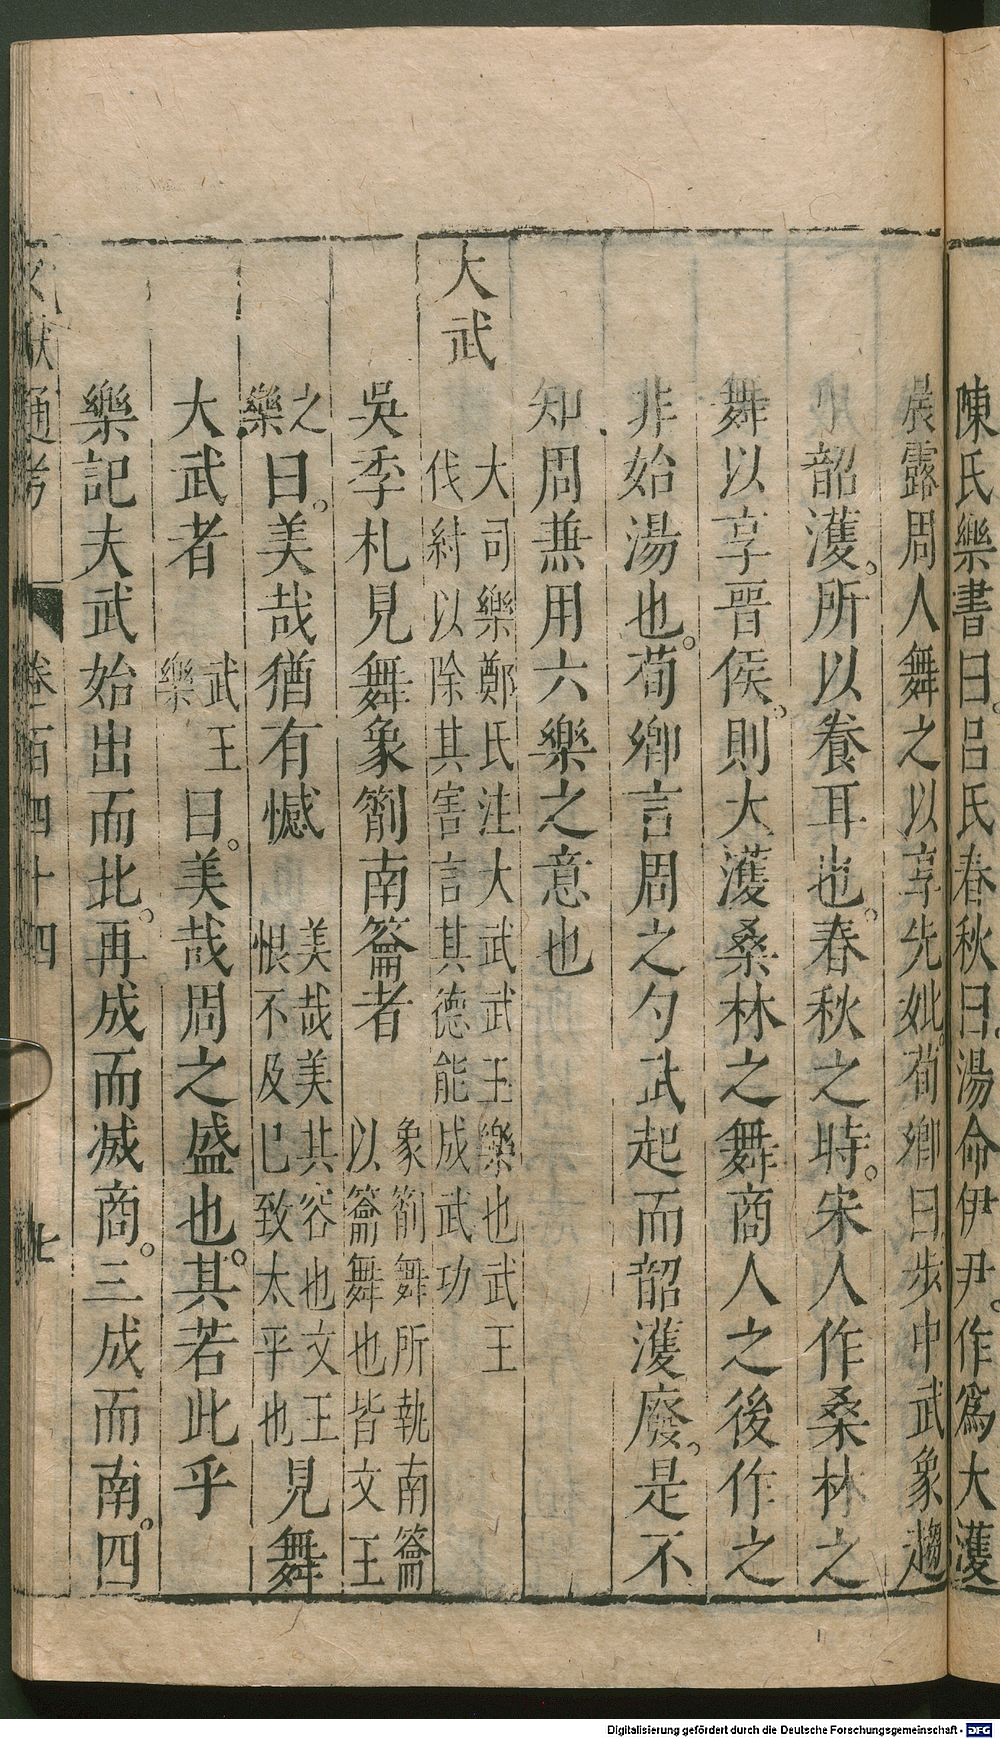 陳氏樂書曰呂氏春秋曰湯命伊尹。作爲大濩
晨露周人舞之以享先妣。荀卿曰步中武象趨
中韶濩。所以養耳也。春秋之時。宋人作桑林之
舞以享晉侯。則大濩桑林之舞商人之後作之
非始湯也。荀卿言周之勺武起而韶濩廢。是不
知周兼用六樂之意也
大武
大司樂鄭氏注大武武王樂也武王
伐紂以除其害言其德能成武功
吳季札見舞象箾南籥者
象箾舞所執南籥
以籥舞也皆文王
之
樂
曰。美哉猶有憾
美哉美其容也文王
恨不及已致太平也
見舞
大武者
武王
樂
曰。美哉周之盛也。其若此乎
樂記夫武始出而北。再成而滅商。三成而南。四
文獻通考 卷百四十四
Digitalisierung gefördert durch die Deutsche Forschungsgemeinschaft - DFG